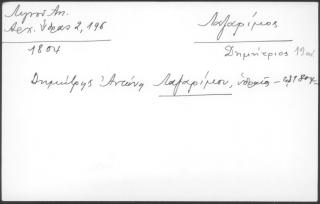 Λιγνού Αν.
Αρχ. Ύδρας 2, 196
1804
Λαζαρίμος
Δημήτριος 19αι
Δημήτρης Αντώνη Λαζαρίμου, 1804